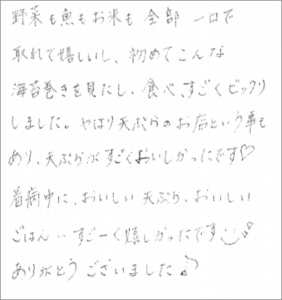 野菜も魚もお米も 全部 一口で
取れて嬉しいし、初めてこんな
海苔巻きを見たし、食べ、すごくビックリ
しました。やはり天ぷらのお店という事も
あり、天ぷらがすごくおいしかったです♡
看病中に、おいしい 天ぷら、おいしい
ごはん… すごーく嬉しかったです
ありがとう ございました♪